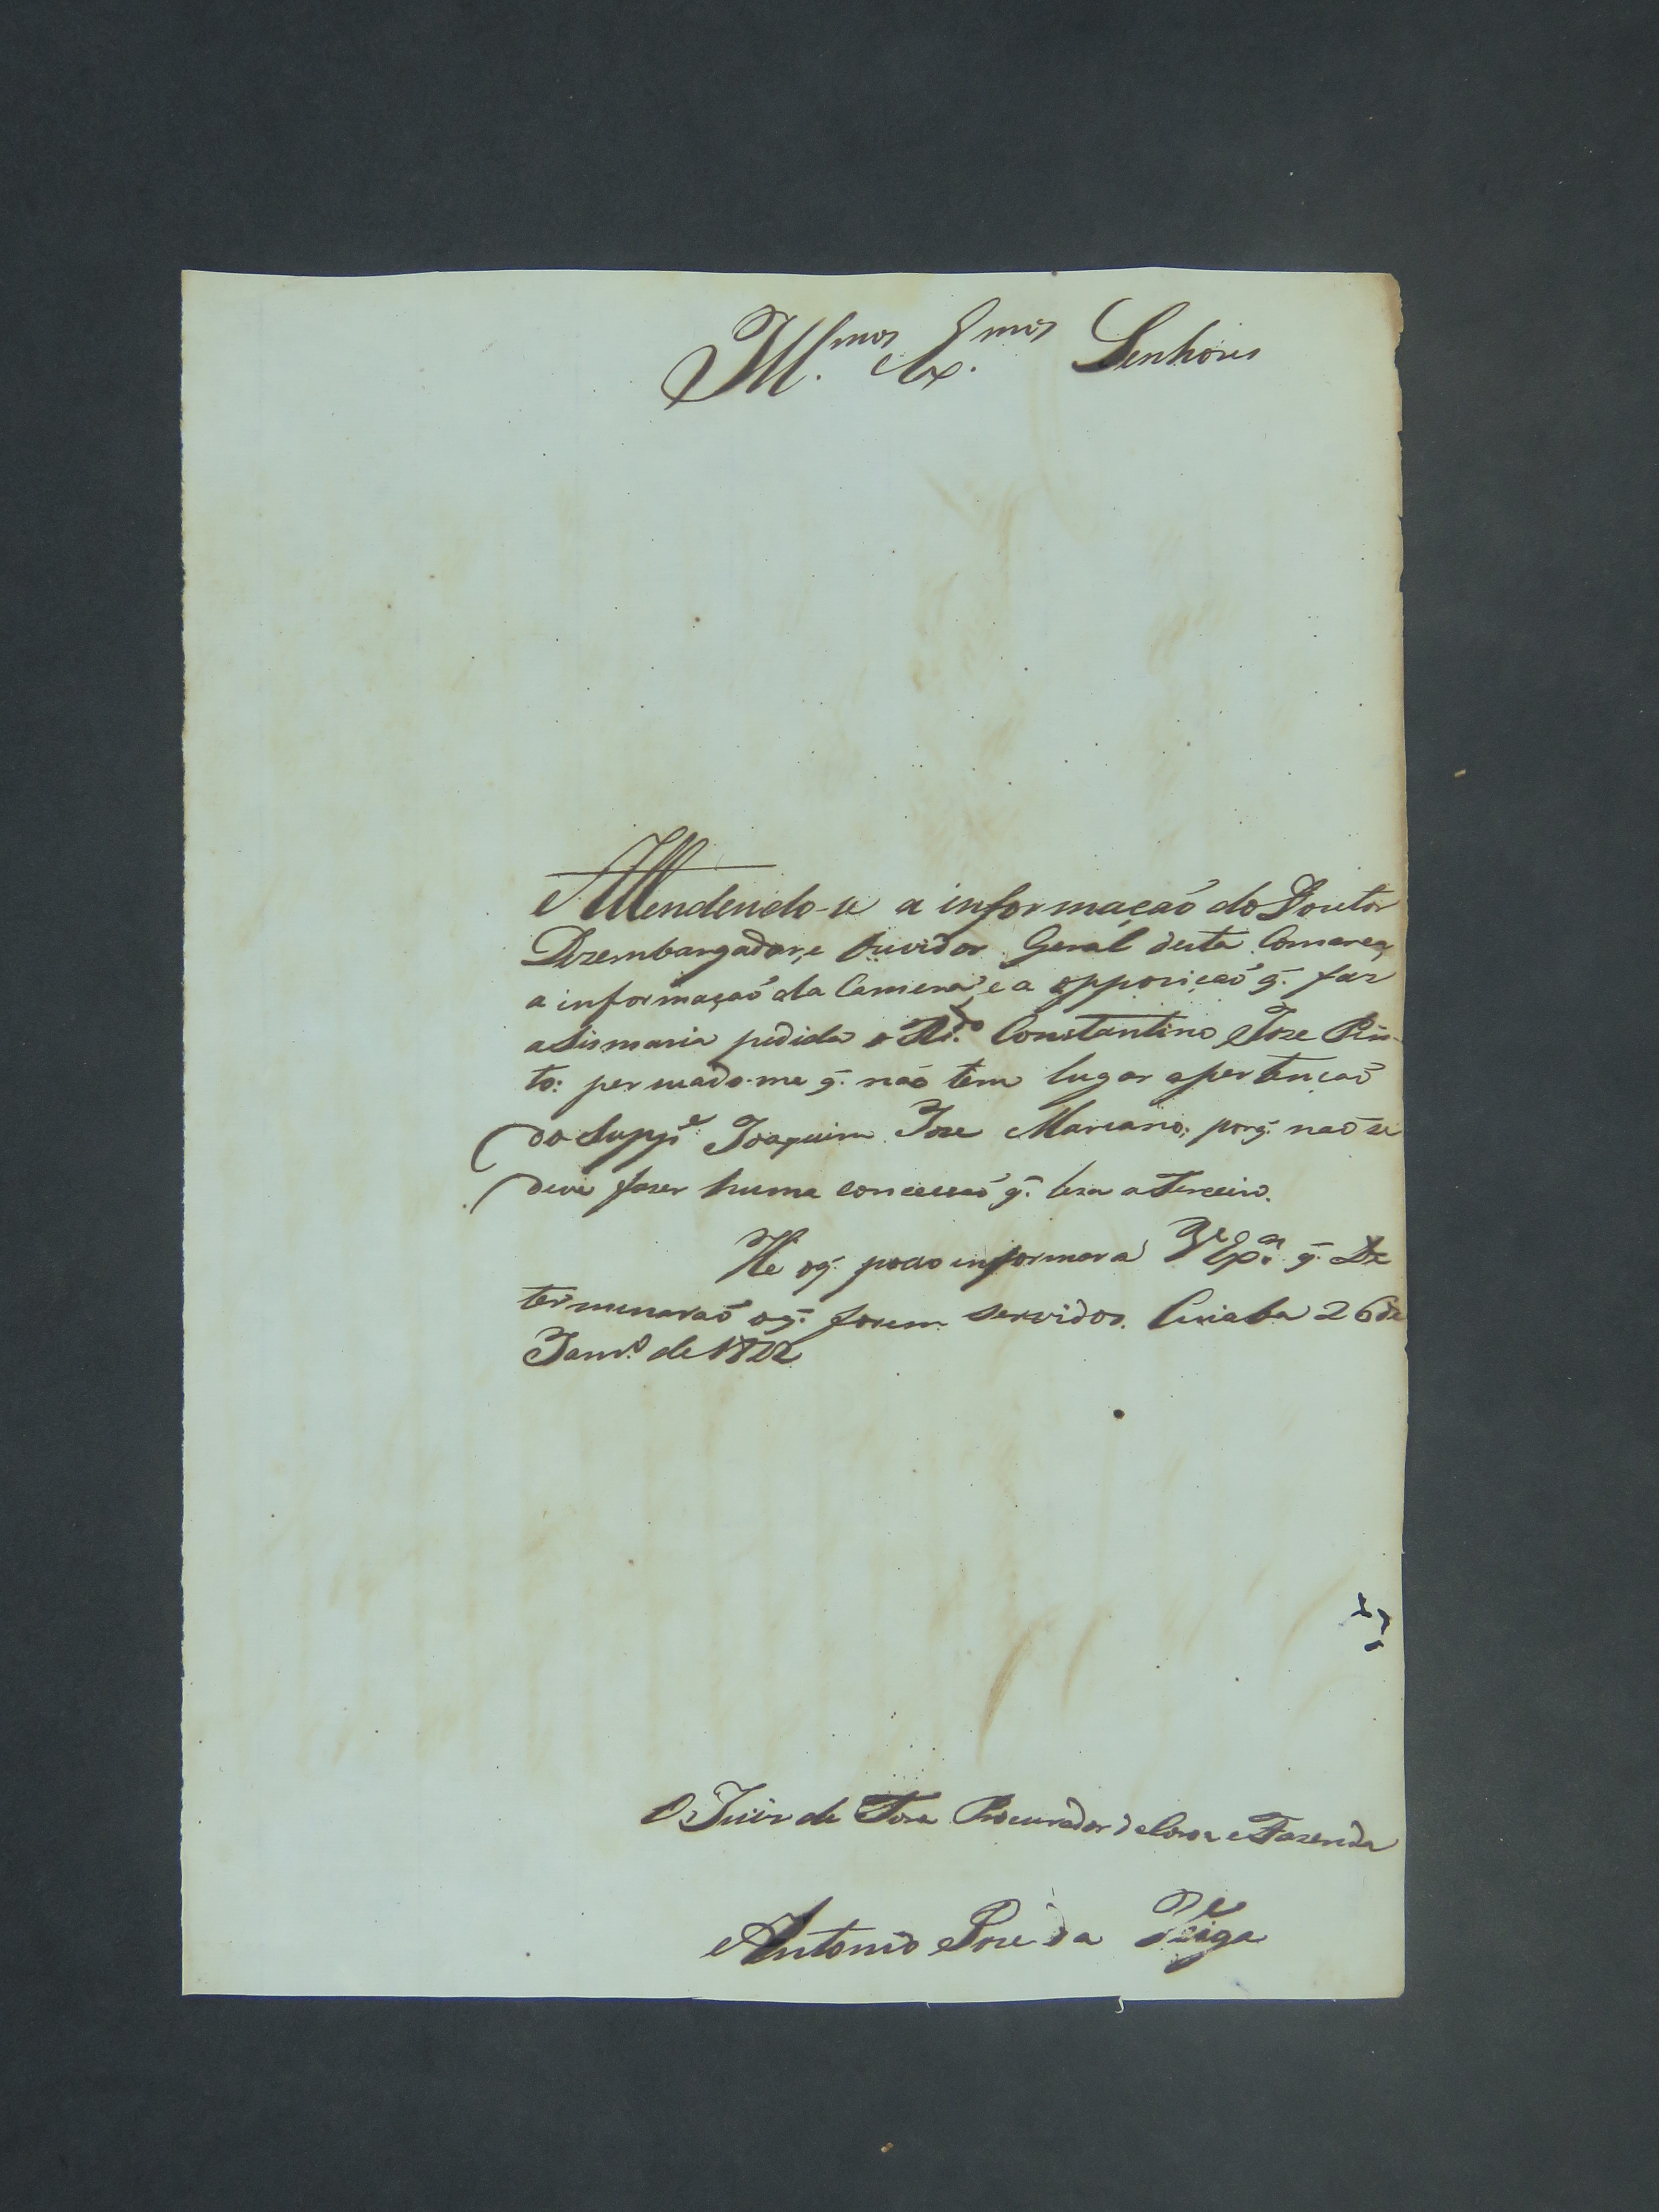 Ill.mos Ex.mos Senhores
Attendendo-se a informaçaõ do Doutor
Dezembargador, e Ouvidor Geral desta Comarca,
a informaçaõ da Camera, e a opposiçaõ q̃. faz
a Sismaria pedida o R.do Constantino Joze Pin-
to: persuado-me q̃. naõ tem lugar apertençaõ
do Supp.e Joaquim Joze Marcano; porq̃. naõ se
deve fazer huma concessaõ q̃. leza a Terceiro.
He oq̃. posso informar a V.Ex.as q̃. De
terminaraõ oq̃. forem servidos. Cuiaba 26 de
Janr.o de 1822
O Juiz de Fora Procurador da Coroa e Fazenda
Antonio Joze da Veiga